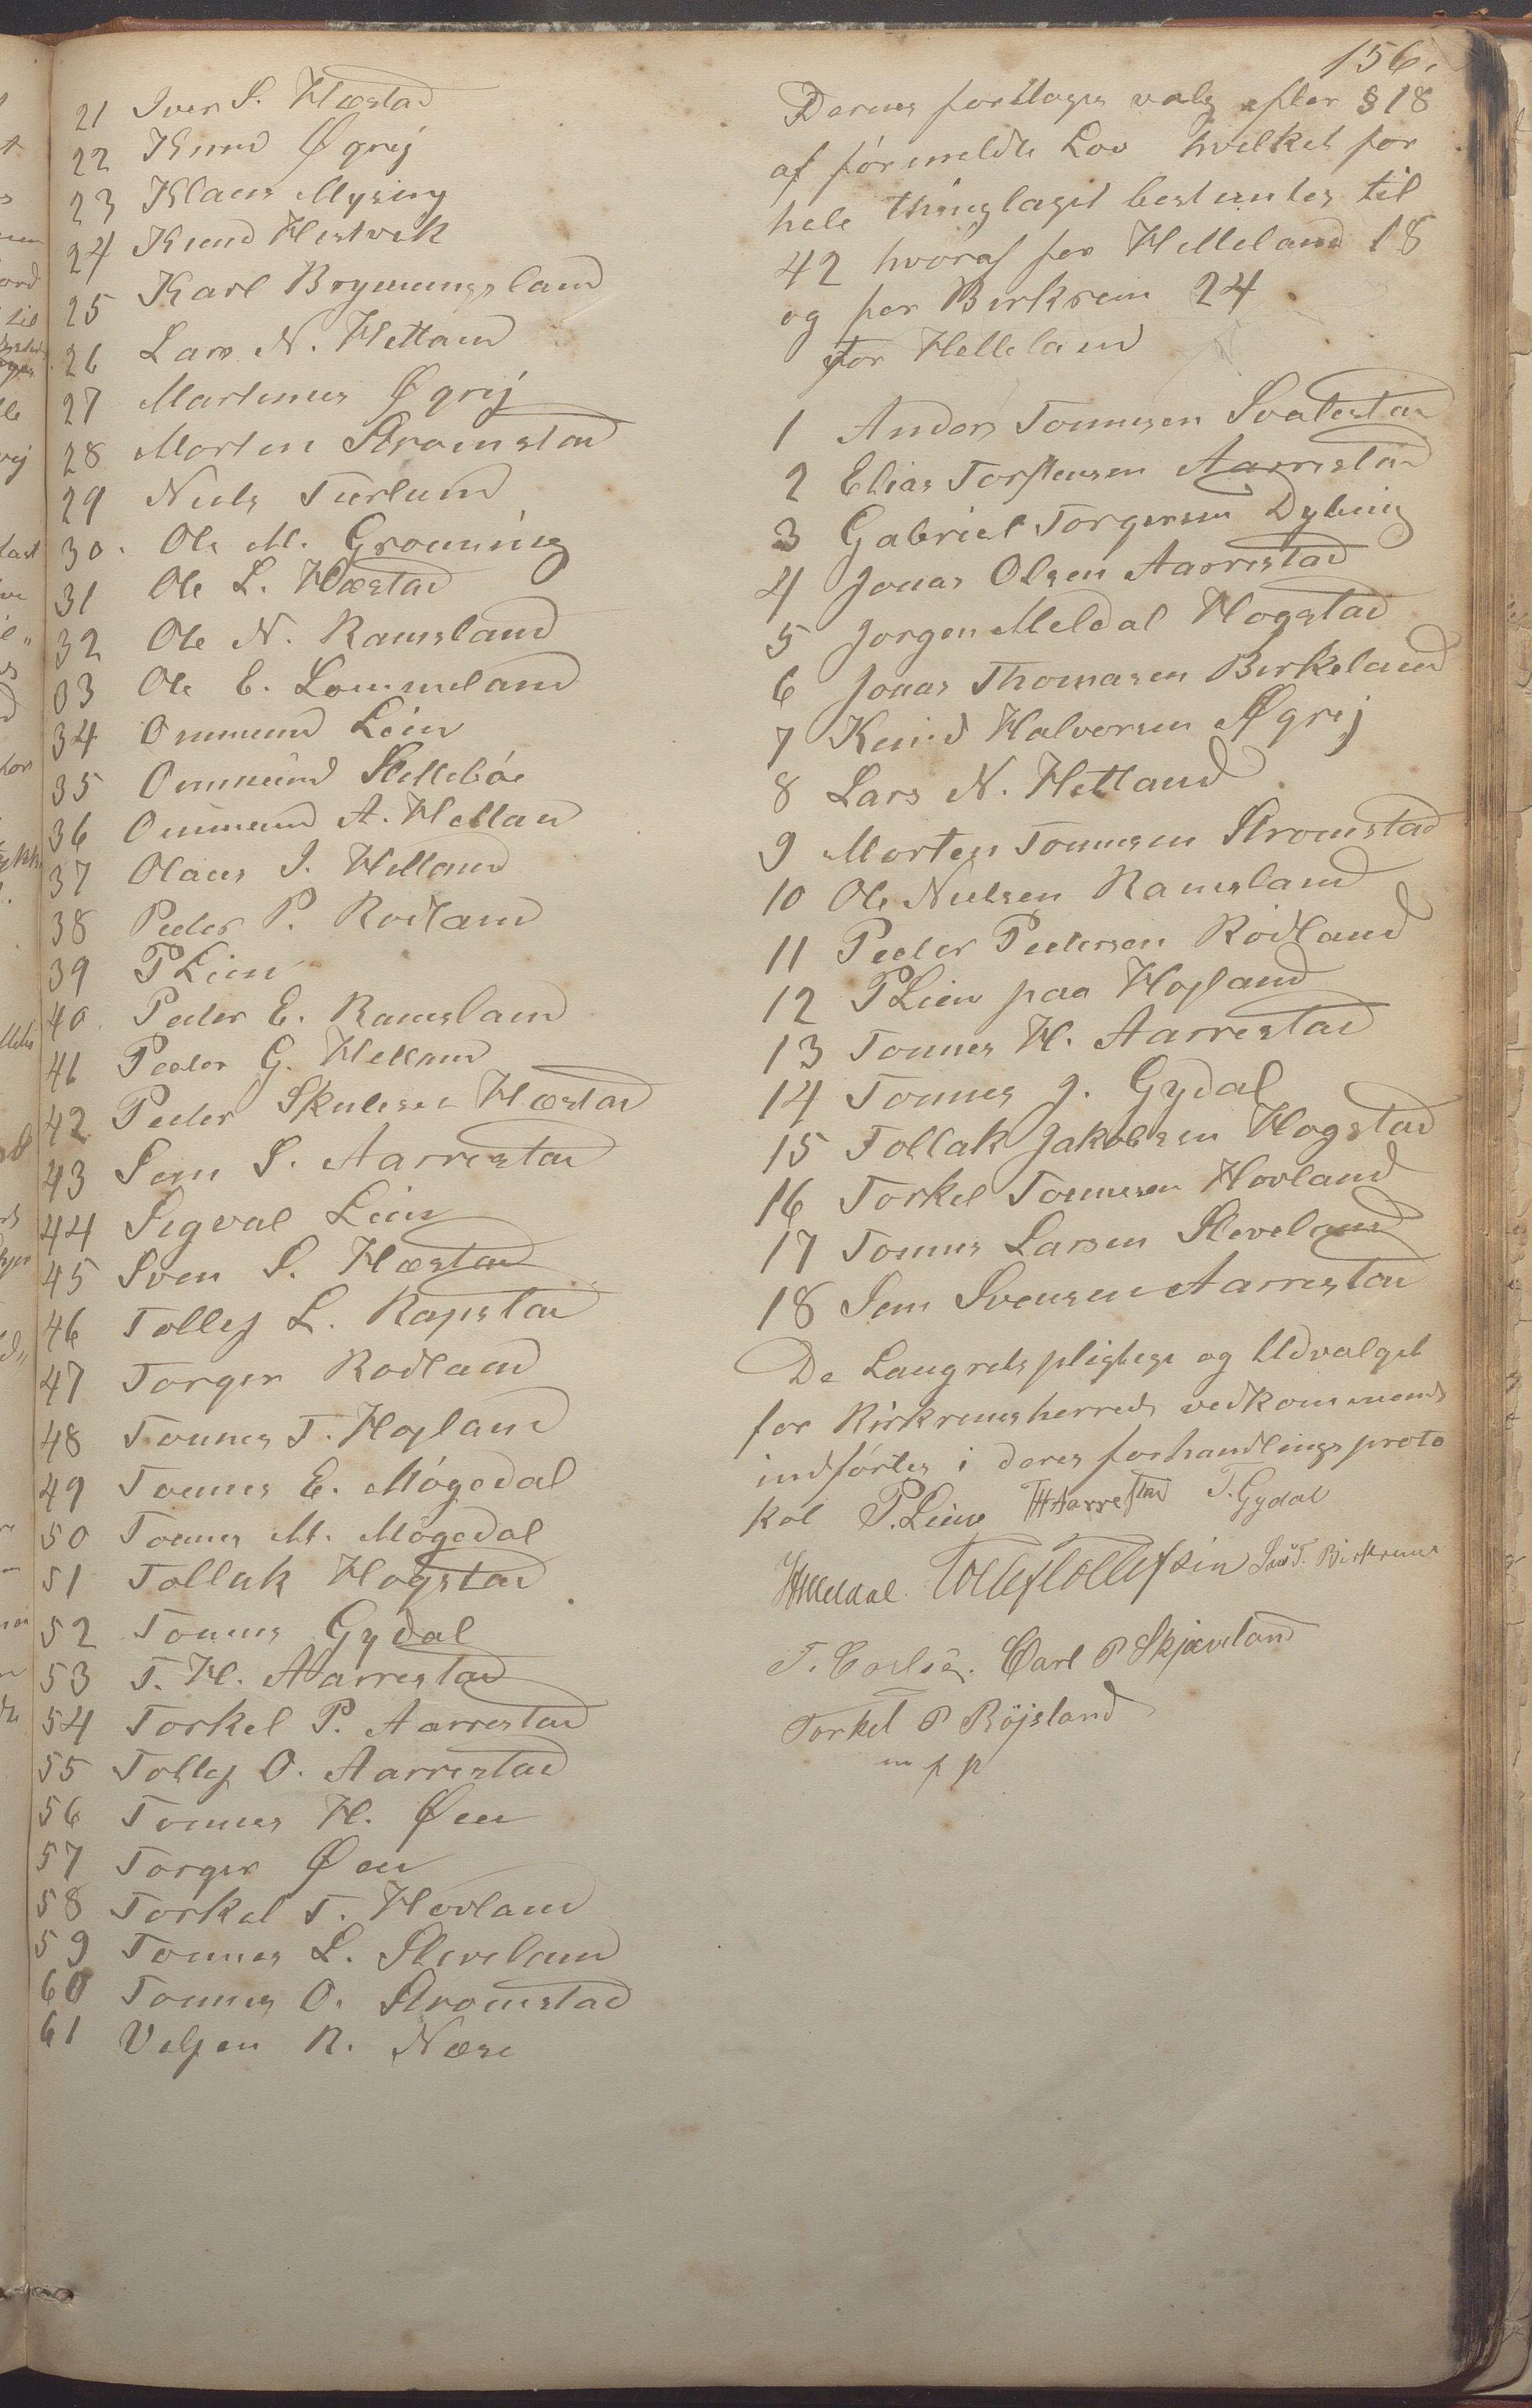 156.
21 Iver S. Hæstad
22 Knud Øgrej
23 Klaus Mysing
24 Knud Hestvik
25 Karl Bryunningsland
26 Lars N. Hetland
27 Martinus Øgrej
28 Morten Stromstad
29 Niels Turlund
30. Ole M. Gromning
31 Ole L. Hæstad
32 Ole N. Ramsland
33 Ole E. Lommeland
34 Ommund Lein
35 Ommund Slettebøe
36 Ommund A. Helland
37 Olaus I. Helland
38 Peder P. Rodland
39 P Lien
40. Peder E. Ramsland
41 Peder G. Helland
42 Peder Skulesen Hæstad
43 Sem S. Aarrestad
44 Sigval Lein
45 Sven S. Hæstad
46 Tollef L. Rapstad
47 Torger Rodland
48 Tonnes T. Hogland
49 Tonnes E. Mögedal
50 Tonnes M. Mögedal
51 Tollak Hogstad
52 Tonnes Gydal
53 T. H. Aarrestad
54 Torkel P. Aarrestad
55 Tollef O. Aarrestad
56 Tonnes H. Øen
57 Torger Øen
58 Torkel T. Hovland
59 Tonnes L. Steveland
60 Tonnes O. Stromstad
61 Veljen R. Næse
Dernes fortloges valg efter § 18
af førmeldte Lov hvilket for
hele thinglaget bestemtes til
42 hvoraf for Helleland 18
og for Birkrem 24
For Helleland
1 Anders Tonnesen Svalestad
2 Elias Torstensen Aarrestad
3 Gabriel Torgersen Dybing
4 Jonas Olsen Aarrestad
5 Jorgen Meldal Hogstad
6 Jonas Thomasen Birkeland
7 Knud Halvorsen Øgrej
8 Lars N. Hetland
9 Morten Tonnesen Stromstad
10 Ole Nielsen Ramsland
11 Peder Pedersen Rodland
12 P Lien paa Hogland
13 Tonnes H. Aarrestad
14 Tonnes J. Gydal
15 Tollak Jakobsen Hogstad
16 Torkel Tonnesen Hovland
17 Tonnes Larsen Steveland
18 Sem Svensen Aarrestad
De Laugretspligtige og Udvalget
for Birkremsherreds vedkommende
indførtes i deres forhandlingsproto
kol P. Lien TH Aarrestad T. Gydal
Tollef Tollefsen T. Birkrem
T. Carl P Skjæveland
Torkel P Röjsland
m p p